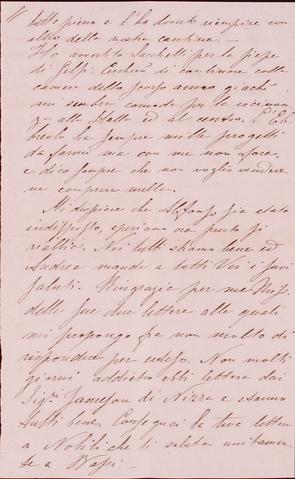 tutto pieno e l'ho dovuto riempire con
altro della nostra cantina.
Ho avvertito Sacchetti per le pezze
di Gelfi. Cercherò di continuare colle
camere dello scorso anno giacchè
mi sembra comoda per la vicinan-
za alla Stalla ed al centro.
ha sempre mille progetti
da farmi ma con me non
e dico sempre che non voglio vendere
ne comprare nulla.
Mi dispiace che sia stato
indisposto, speriamo ora presto si
riabbia. Noi tutti stiamo bene ed
Andrea manda a tutti Voi i suoi
saluti. Ringrazia per me
delle sue due lettere alle quali
mi propongo fra non molto di
rispondere per esteso. Non molti
giorni addietro ebbi lettere dai
Sigri Jameson di Nizza e stanno
tutti bene. Consegnai la tua lettera
a Nobili che ti saluta unitamen-
te a